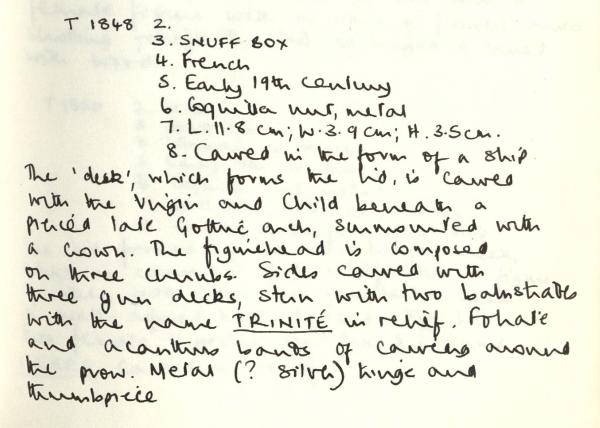 T 1848 2.
3. SNUFF BOX
4. French
5. Early 19th Century
6. Coquilla nut, metal
7. L. 11.8 cm; W. 3.9 cm; H. 3.5 cm.
8. Carved in the form of a ship.
The 'deck', which forms the lid, is carved
with the Virgin and Child beneath a
pierced late Gothic arch, surmounted with
a crown. The figurehead is composed
on three cherubs. Sides carved with
three gun decks, stern with two balustrades
with the name TRINITÉ in relief. Foliate
and acanthus bands of carving around
the prow. Metal (? silver) hinge and
thumbpiece